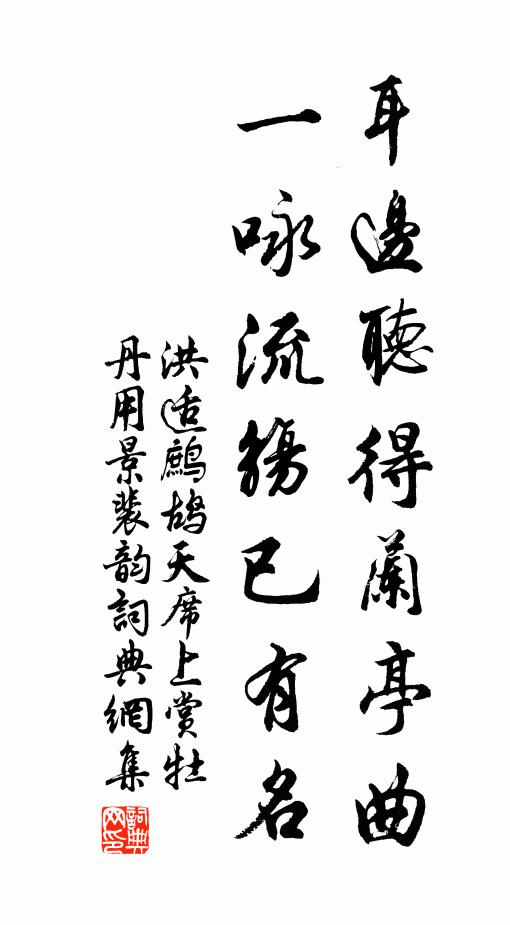 耳邊聽得蘭亭曲
一咏流觴已有名
洪适鷓鴣天席上賞牡
丹用景裴韵詞典網集
詞典網印